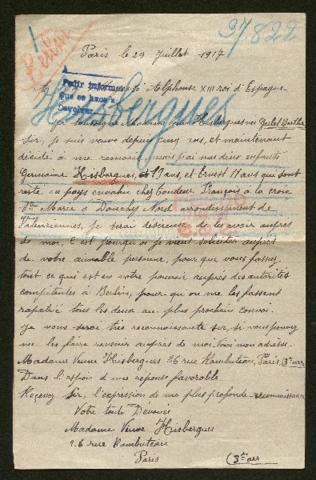 37822
Berlin
Paris le 29 Juillet 1917
Alphonse XIII roi d'Espagne.
Pedir informes
que se haga
Hesbergues
Sir, je suis veuve depuis cinq ans, et maintenant
décidé à me remarier mais j'ai mes deux enfants
Germaine Hesbergues, et Ernest 11 ans que sont
resté en pays envahie chez Coudeur François à la croix
Ste Marie à Douchy Nord arrondissement de
Valenciennes, je serai desireuse de les avoir auprès
de moi. C'est pourquoi je viens soliciter auprès
de votre aimable personne, pour que vous fassiez
tout ce qui est en votre pouvoir auprès des autorités
compétentes à Berlin, pour qu on me les fassent
rapatrié tous les deux au plus prochain convoi.
Je vous serai très reconnaissante si vous pouvez
me les faire revenir auprès de moi. Voici mon adresse.
Madame Veuve Hesbergues 26 rue Rambuteau, Paris 3e arr
Dans l'espoir d'une réponse favorable
Recevez Sir, l'expression de ma plus profonde reconnaissance
Votre toute Dévouée
Madame Veuve Hesbergues
26 rue Rambuteau
Paris (3e arr